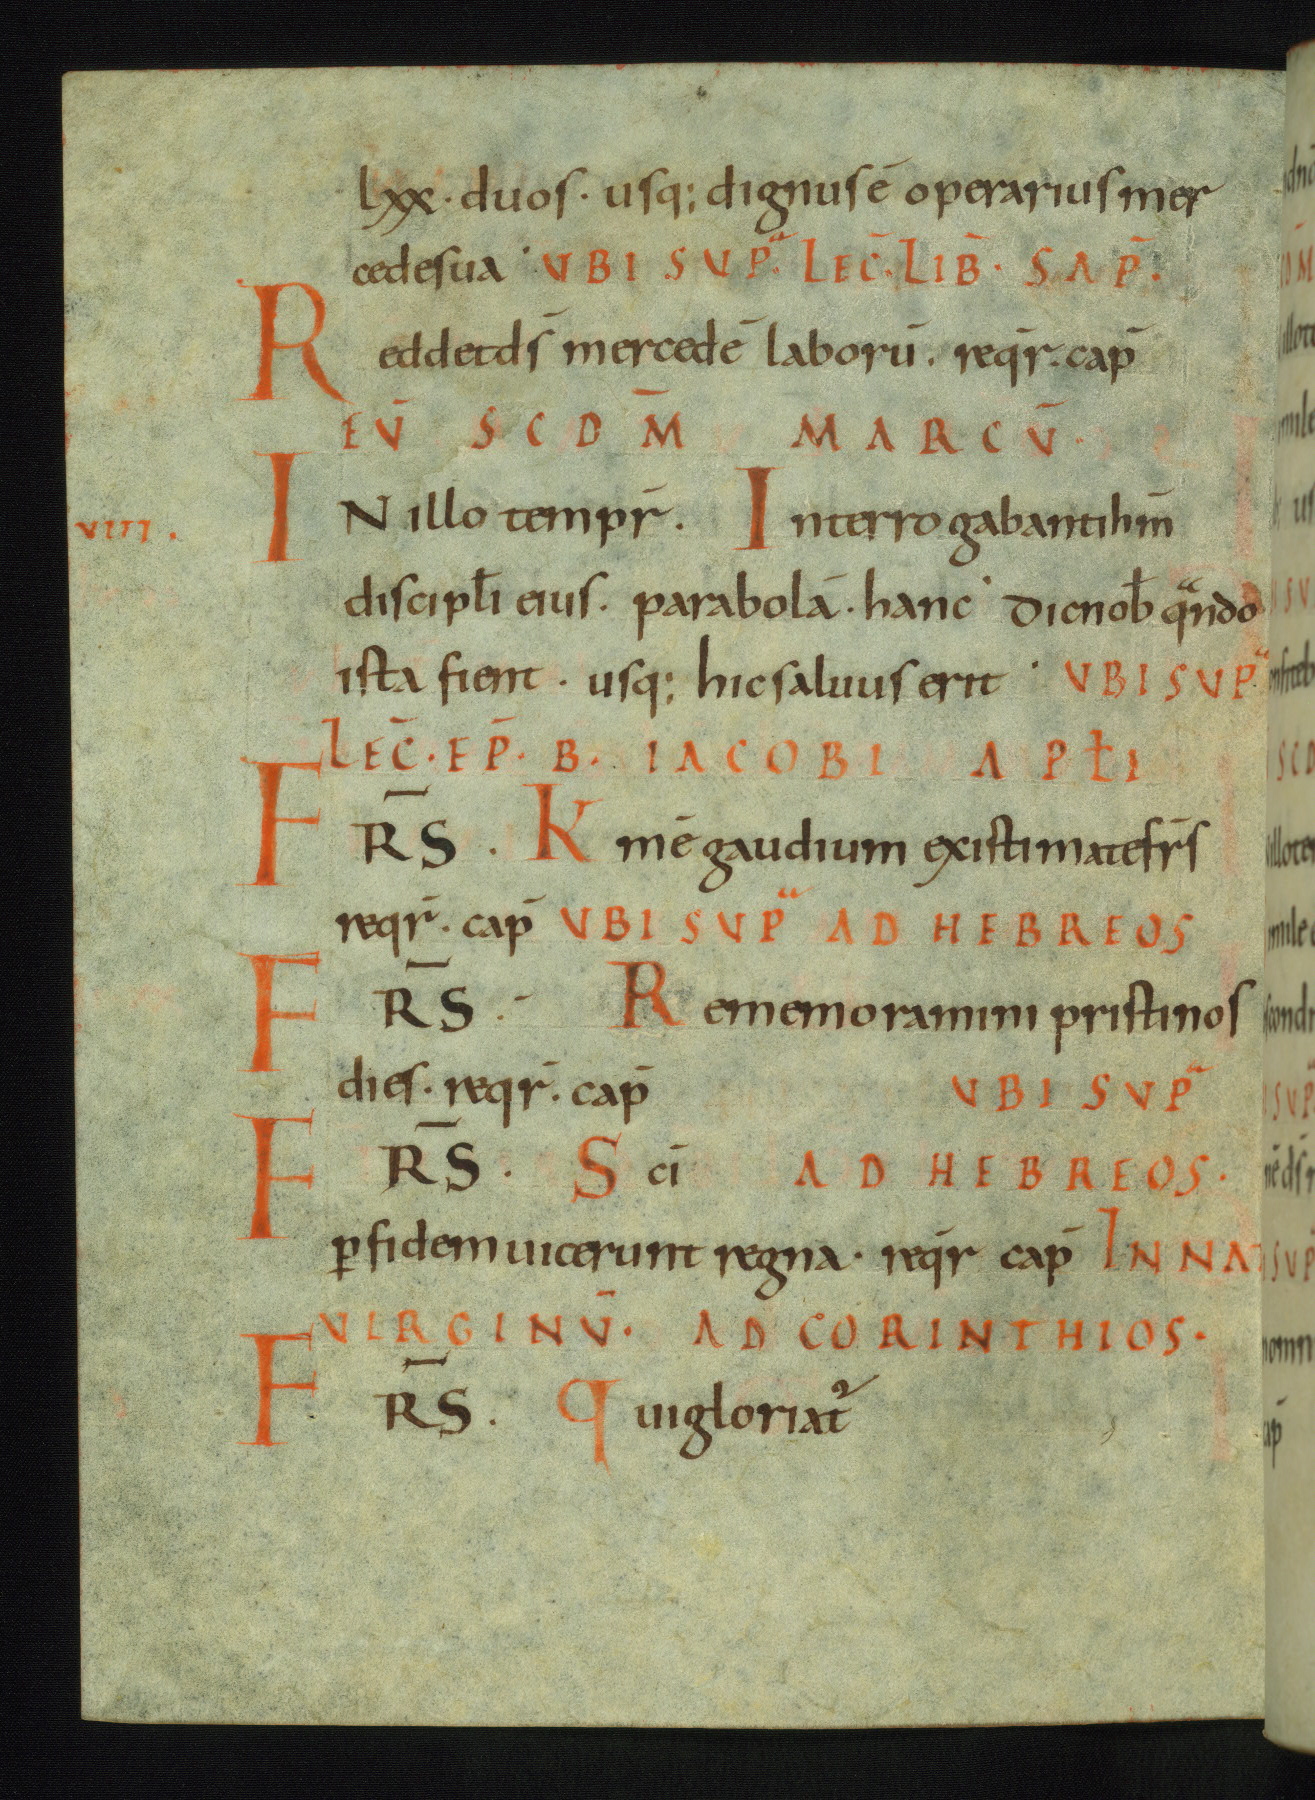 lxx · duos · usq; dignus ē operarius mer
cede sua · UBI SUPᵃ. LEC̄. LIB̄. SAP̄.
Reddet ds̄ mercedē laborū. reqr̄. cap̄
EŪ SCDM̄ MARCŪ.
VIII.
IN illo tempr̄. Interrogabant ihm̄
discipłi eius. parabolā. hanc· Dic nob̄ qᵃndo
ista fient. usq; hic saluus erit · UBI SUPᵃ
LEC̄. EP̄. B. IACOBI APŁI
FR̄S. Kmē gaudium existimate fr̄s
reqr̄. cap̄ UBI SUPᵃ AD HEBREOS
FR̄S. Rememoramini pristinos
dies. reqr̄. cap̄ UBI SUPᵃ
FR̄S. Scī AD HEBREOS.
ꝑ fidem uicerunt regna. reqr̄ cap̄ IN NAT
VIRGINŪ. AD CORINTHIOS.
FR̄S. Qui gloriat᷑